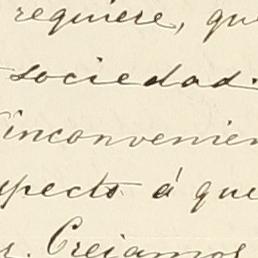 requiere, que
sociedad.
inconvenien
specto á que
Creiamos